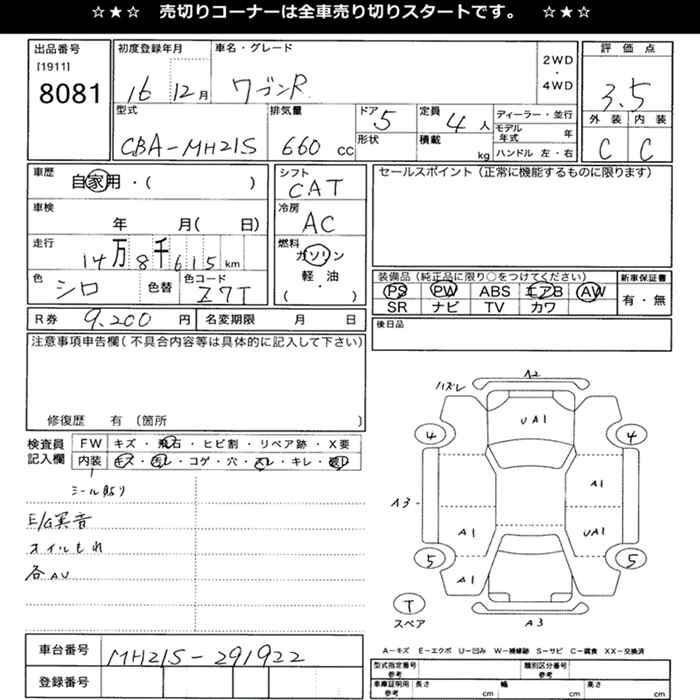 ☆★☆ 売切りコーナーは全車売り切りスタートです。 ☆★☆
出品番号 [1911] 8081
初度登録年月 16 12月
車名・グレード ワゴンR
2WD・4WD
評価点 3.5
外装 C 内装 C
型式 CBA-MH21S
排気量 660 cc
ドア 5
形状
定員 4人
積載 kg
ディーラー・並行
モデル年式 年
ハンドル 左・右
車歴 自家用・( )
車検 年 月( 日)
走行 14万8千615km
色 シロ 色替 色コード Z7T
シフト CAT
冷房 AC
燃料 ガソリン 軽・油 ( )
セールスポイント(正常に機能するものに限ります)
装備品(純正品に限り○をつけてください)
PS PW ABS エアB AW
SR ナビ TV カワ
新車保証書 有・無
R券 9,200 円 名変期限 月 日
後日品
注意事項申告欄(不具合内容等は具体的に記入して下さい)
修復歴 有(箇所 )
検査員記入欄
FW キズ・飛石・ヒビ割・リペア跡・X要
内装 キズ・汚レ・コゲ・穴・スレ・キレ・破レ
シール貼り
E/G異音
オイルもれ
各AU
ハズレ A2
UA1
4 4
A1
A3
A1 UA1
5 5
A1
T
スペア
A3
A-キズ E-エクボ U-凹み W-補修跡 S-サビ C-腐食 XX-交換済
車台番号 MH21S-291922
登録番号
型式指定番号 参考
類別区分番号 参考
車庫証明用 参考 長さ cm 幅 cm 高さ cm